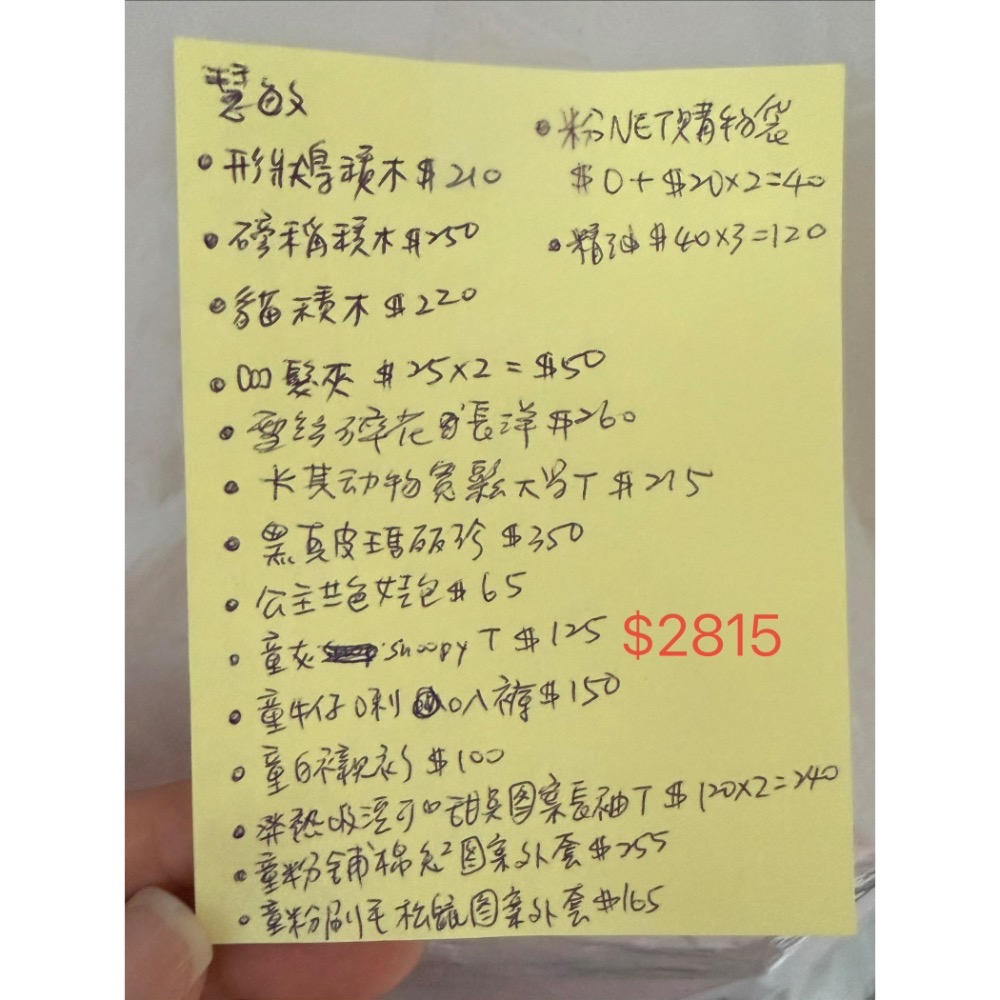 慧敏
• 形狀 積木 $210
• 磅稱積木 $250
• 貓積木 $220
• 髮夾 $25×2=$50
• 雪紡碎花 長洋 $260
• 卡其动物寬鬆大 T $215
• 黑真皮瑪丽珍 $350
• 公主 色娃包 $65
• 童灰 snoopy T $125
• 童牛仔 刺 八褲 $150
• 童白襯衫 $100
• 发热 可 图案長袖T $120×2=240
• 童粉鋪棉 图案外套 $255
• 童粉刷毛松鼠图案外套 $165
• 粉NET購物袋
$0+$20×2=40
• 精油 $40×3=120
$2815